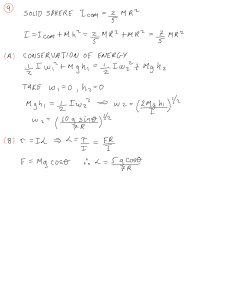 9
SOLID SPHERE I com = 2/5 MR²
I = I com + Mh² = 2/5 MR² + MR² = 7/5 MR²
(A) CONSERVATION OF ENERGY
1/2 I ω₁² + Mgh₁ = 1/2 I ω₂² + Mgh₂
TAKE ω₁ = 0, h₂ = 0
Mgh₁ = 1/2 I ω₂² ⇒ ω₂ = (2Mgh₁/I)^1/2
ω₂ = (10 g sinθ/7R)^1/2
(B) τ = Iα ⇒ α = τ/I = FR/I
F = Mg cosθ ∴ α = 5 g cosθ/7R